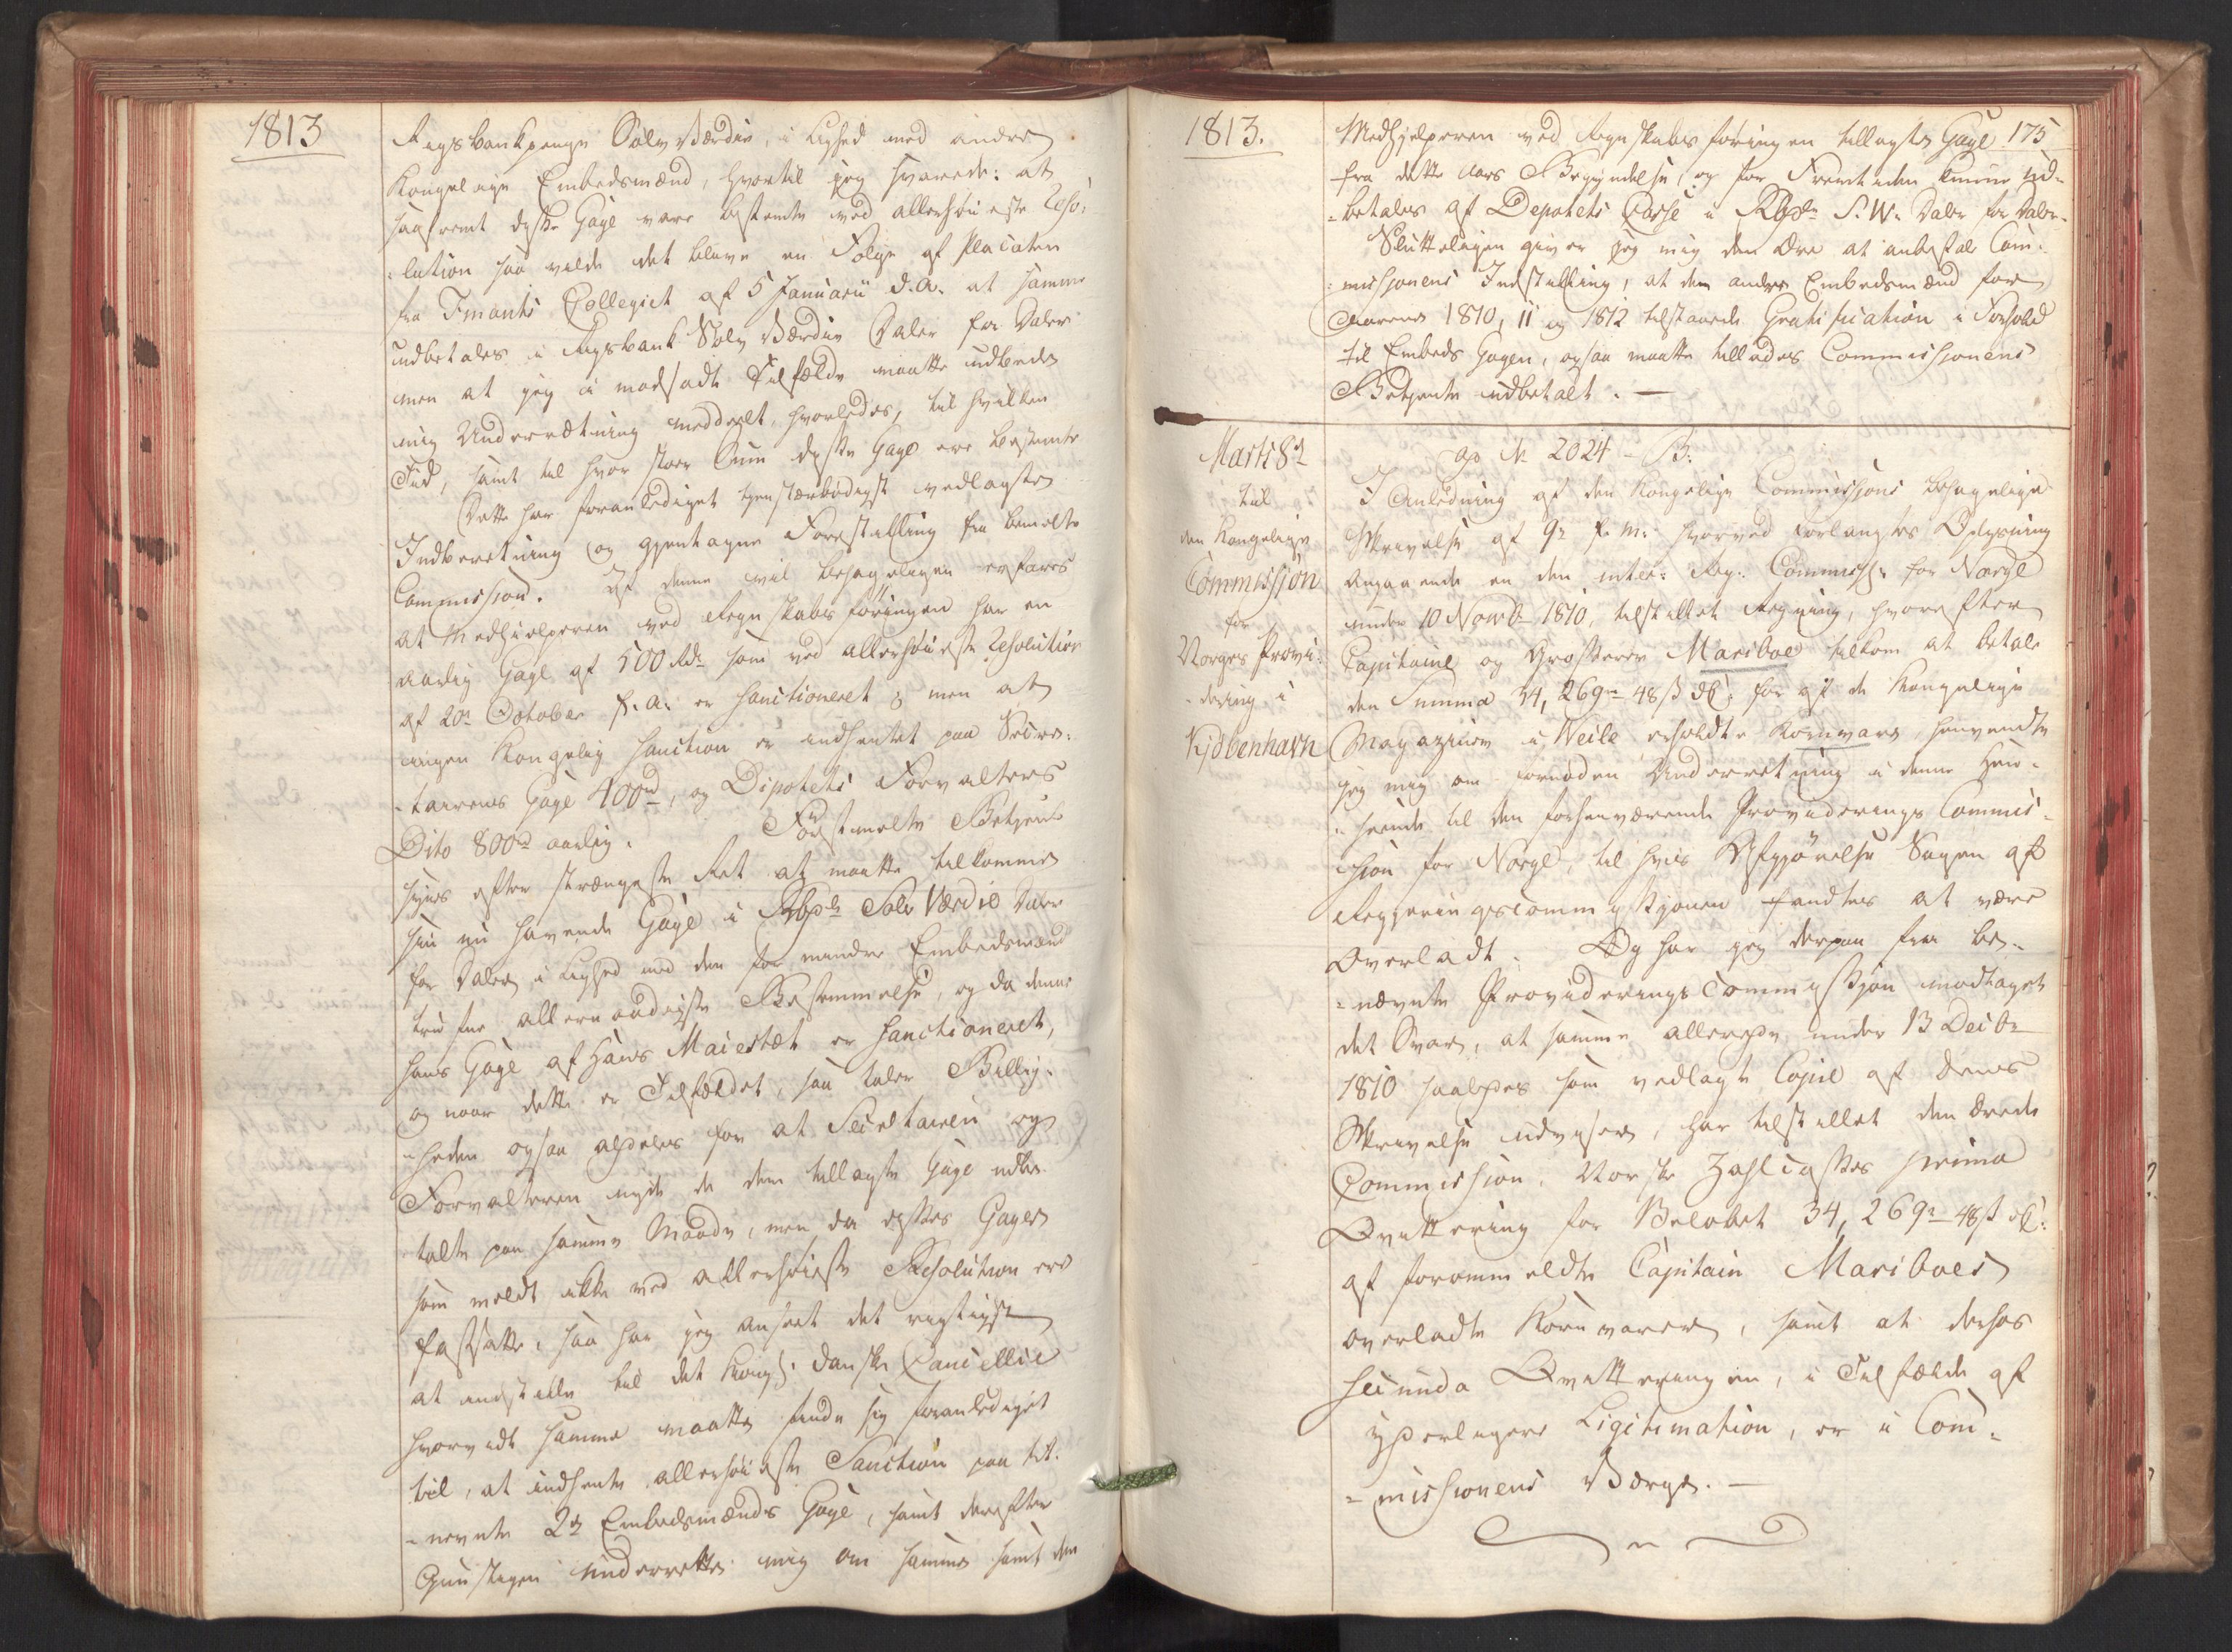 1813
Rigsbankpenge Sølv Værdie, i Lighed med andre
Kongelige Embedsmænd, hvortil jeg svarede: at
saafremt disse Gage vare bestemte ved allerhøieste Reso¬
lution saa vilde det blive en Følge af Placaten
fra Finants Collegiet af 5 Januarii d. A. at samme
udbetales i Rigsbank Sølv Værdie Daler for Daler
men at jeg i modsadt Tilfælde maatte udbede
mig Underretning meddeelt, hvorledes, til hvilken
Tid, samt til hvor stor Sum disse Gage ere bestemte
Dette har foranlediget hendstærbødigst vedlagte
Indberetning og gjentagne Forestilling fra bemelte
Commission. Af denne vil behageligen erfares
at Medhielperen ved Regnskabsføringen har en
aarlig Gage af 500 Rdr som ved allerhøieste Resolution
af 20de October f. A. er sanctioneret; men at
ingen Kongelig Sanction er indhentet paa Secre¬
tairens Gage 400rd, og Depotets Forvalters
Dito 800rd aarlig. Førstmelte Betjent
synes efter strængeste Ret at maatte tilkomme
sin nu havende Gage i Rbpd Sølv Værdie Daler
for Daler i Lighed med den for mindre Embedsmænd
trufne allernaadigste Bestemmelse, og da denne
hans Gage af Hans Maiestæt er sanctioneret,
og naar dette er Tilfældet, saa taler Billig¬
heden ogsaa aldeles for at Secretairen og
Forvalteren nyde de dem tillagte Gage udbe¬
talte paa samme Maade, men da disses Gager
som meldt ikke ved allerhøieste Resolution ere
fastsatte, saa har jeg anseet det rigtigst
at indstille til det Kongl. danske Cancellie
hvorvidt samme maatte finde sig foranlediget
til, at indhente allerhøieste Sanction paa bet.
nevnte 2de Embedsmænds Gage, samt derefter
Gunstigen underrette mig om samme samt den
1813.
175
Medhjelperen ved Regnskabsføringen tillagte Gage
fra dette Aars Begyndelse, og for Fremtiden kunne ud¬
betales af Depotets Casse i Rbpd. S. W. Daler for Daler.
Sluttelig en giver jeg mig den Ære at anbefale Com¬
missionens Indstilling, at den andre Embedsmænd for
Aarene 1810, 11 og 1812 tilstaaede Gratification i Forhold
til Embeds Gagen, ogsaa maatte tillades Commissionens
Betjente udbetalt. —
Marts 8de
til
den Kongelige
Commission
for
Norges Provi¬
dering i
Kjøbenhavn
ap № 2024 – B.
I Anledning af den Kongelige Commissions behagelige
Skrivelse af 9de f. M. hvorved forlangtes Oplysning
angaaende en den inter: Reg: Commiss: for Norge
under 10 Novbr 1810, tilstillet Regning, hvorefter
Capitaine og Grosserer Mariboe tilkom at betale
den Summa 34,269rd 48ß dC. for af de Kongelige
Magaziner i Veile erholdte Kornvare, henvendte
jeg mig om fornøden Underretning i denne Hen¬
seende til den forhenværende Providerings Commis¬
sion for Norge, til hvis Afgjørelse Sagen af
Regjeringscommissionen fandtes at være
Overladt. Og har jeg derpaa fra be¬
nævnte Providerings Commission modtaget
det Svar, at samme allerede under 13 Decbr
1810 saaledes som vedlagte Copie af dens
Skrivelse udviser, har tilstillet den ærede
Commission, Norske Zahlcasses prima
Qvittering for Beløbet 34,269rd 48ß dC.
af forommeldte Capitain Mariboes
overladte Kornvarer, samt at dessos
secunda Qvitteringen, i Tilfælde af
yderligere Ligitimation, er i Com¬
missionens Værge. —